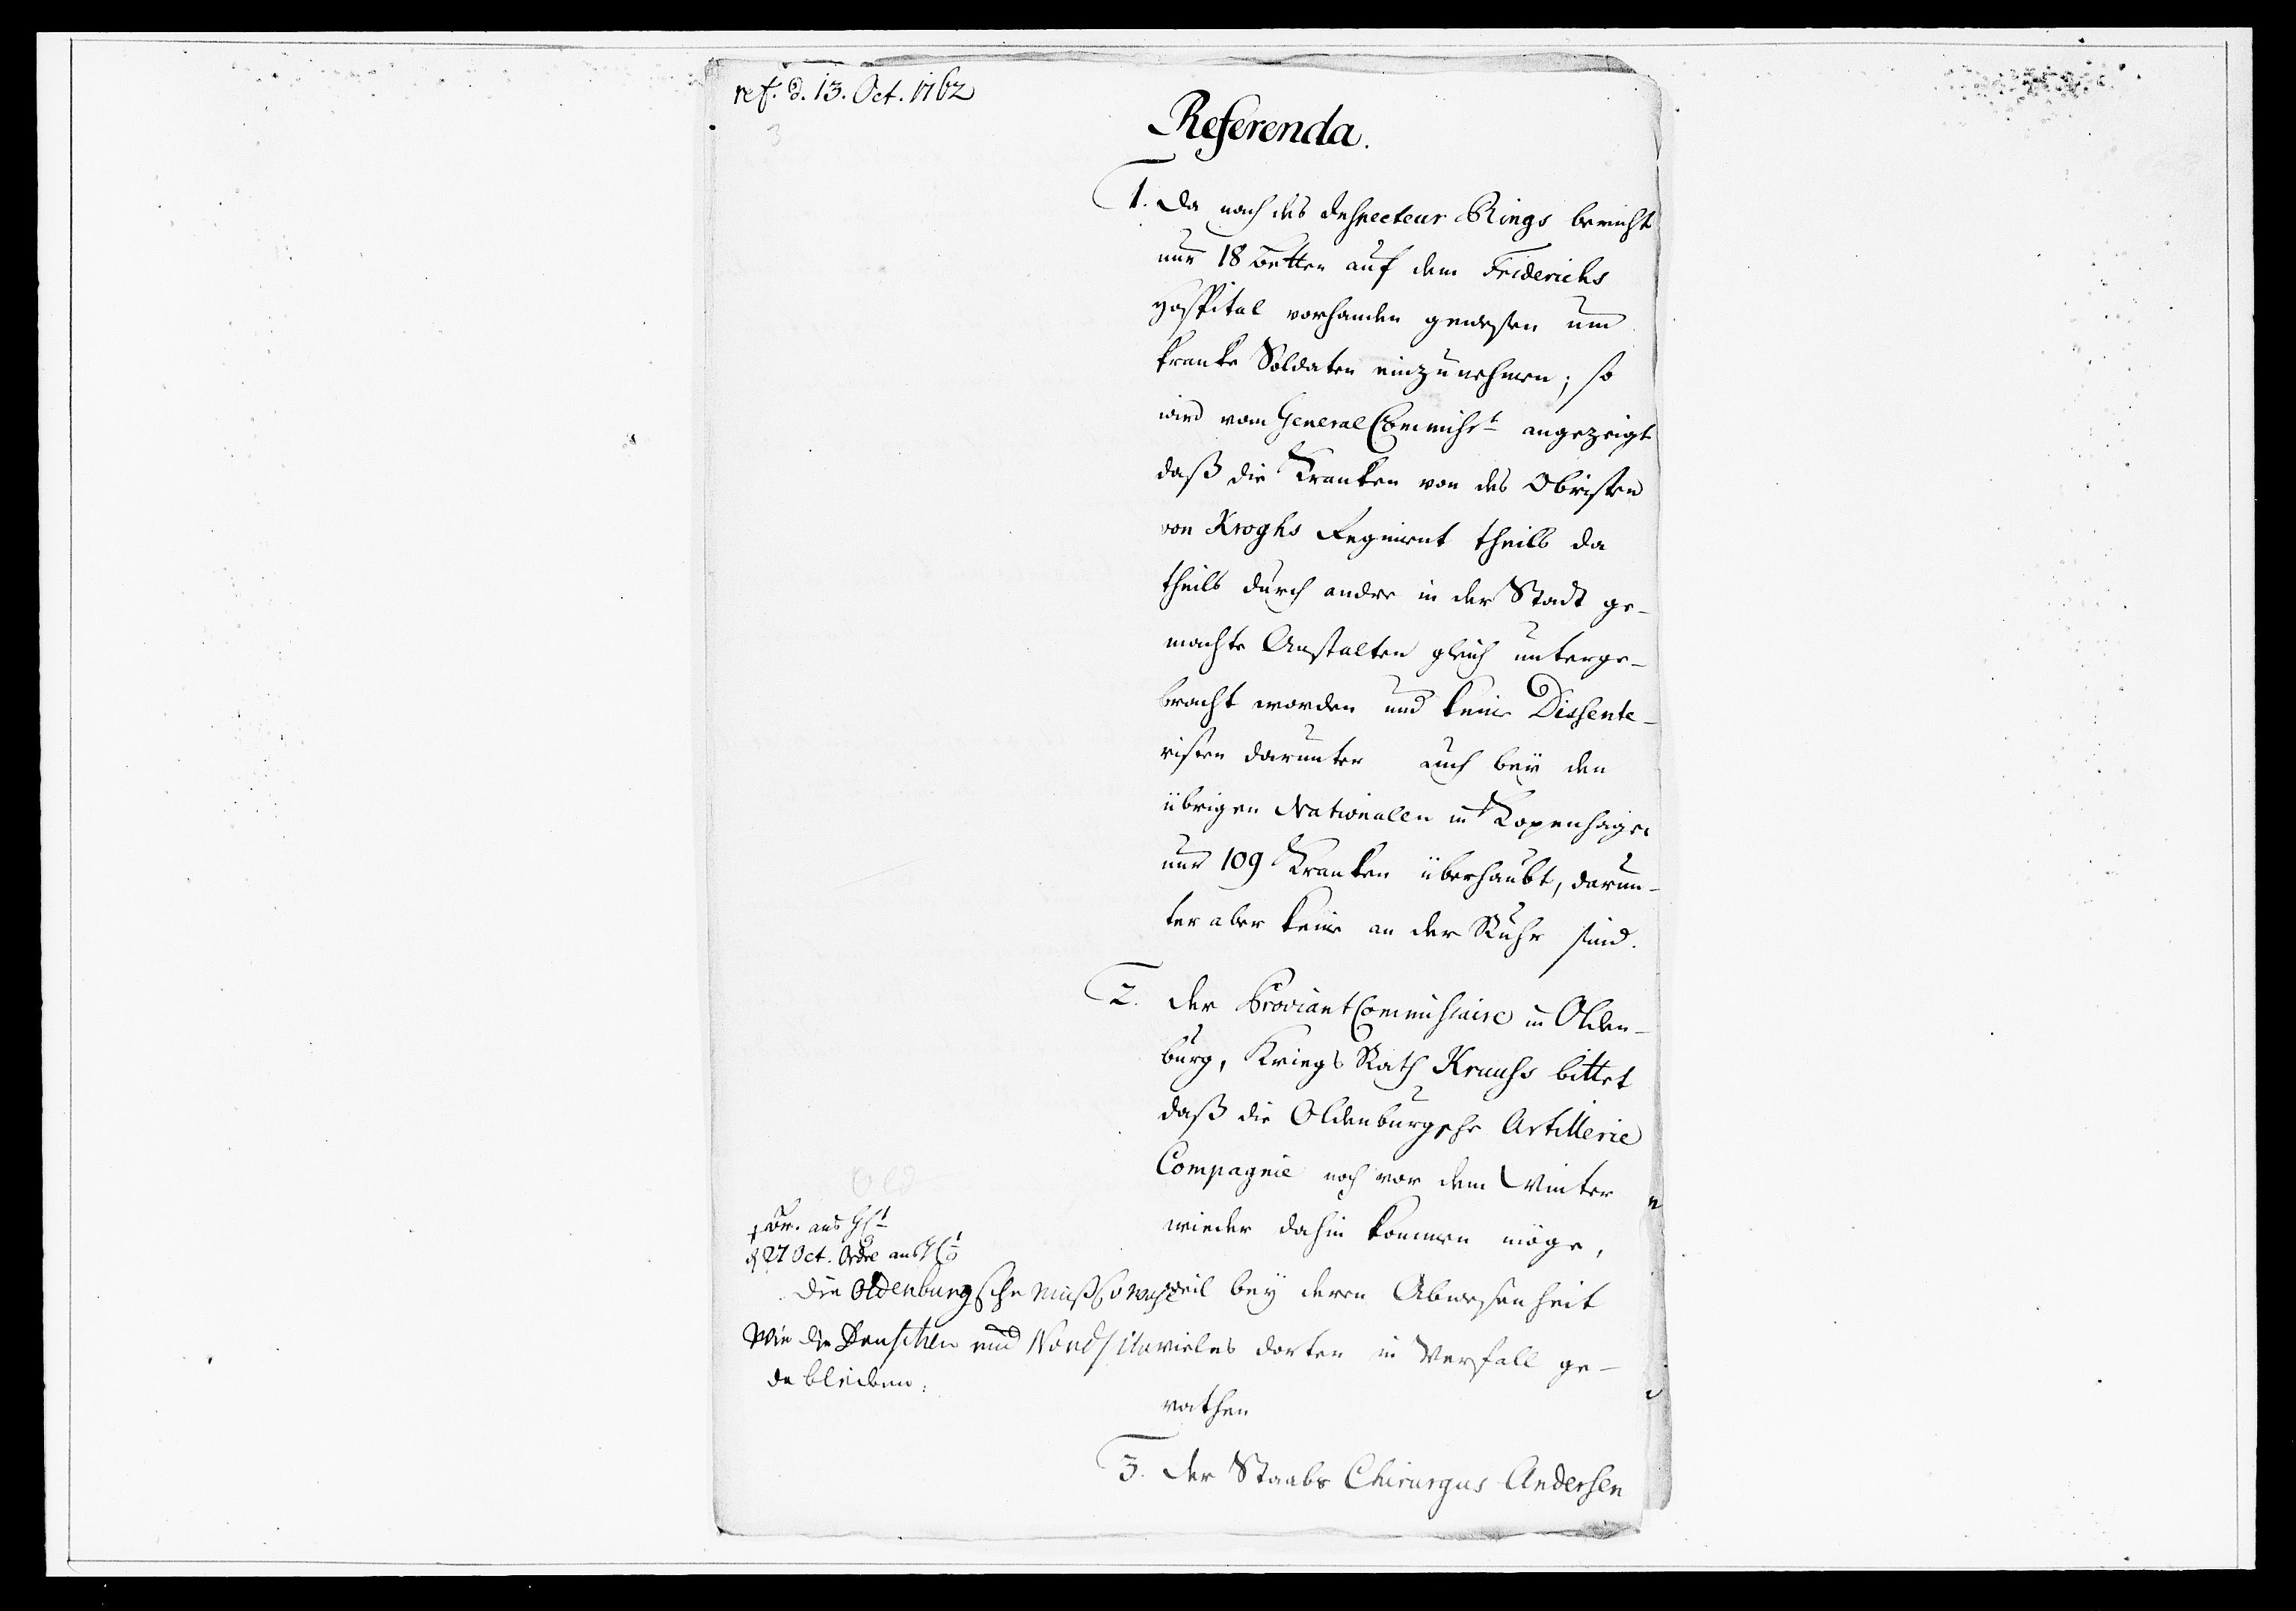 ref. d. 13. Oct. 1762
3
Referenda.
1. Da nach des Inspecteur Rings bericht
nur 18 betten auf dem Friderichs
Hospital vorhanden gewesen um
kranke Soldaten einzunehmen; so
wird vom General Commiss.t angezeigt
daß die Kranken von des Obristen
von Kroghs Regiment theils da
theils durch andre in der Stadt ge-
machte Anstalten gleich unterge-
bracht worden und keine Dissente-
risten darunter auch bey den
übrigen Nationalen in Kopenhagen
nur 109 Kranken überhaubt, darun-
ter aber keine an der Ruhr sind.
2. Der Proviant Commissaire in Olden-
burg, Kriegs Rath Krauss bittet
daß die Oldenburgsche Artillerie
Compagnie noch vor dem Winter
wieder dahin kommen möge,
weil bey deren Abwesenheit
vieles dorten in Verfall ge-
rathen
Old
d 27 Oct. Ordre
die Oldenburgsche muß so wohl
wie die und
da bleiben.
3. Der Staabs Chirurgus Andersen